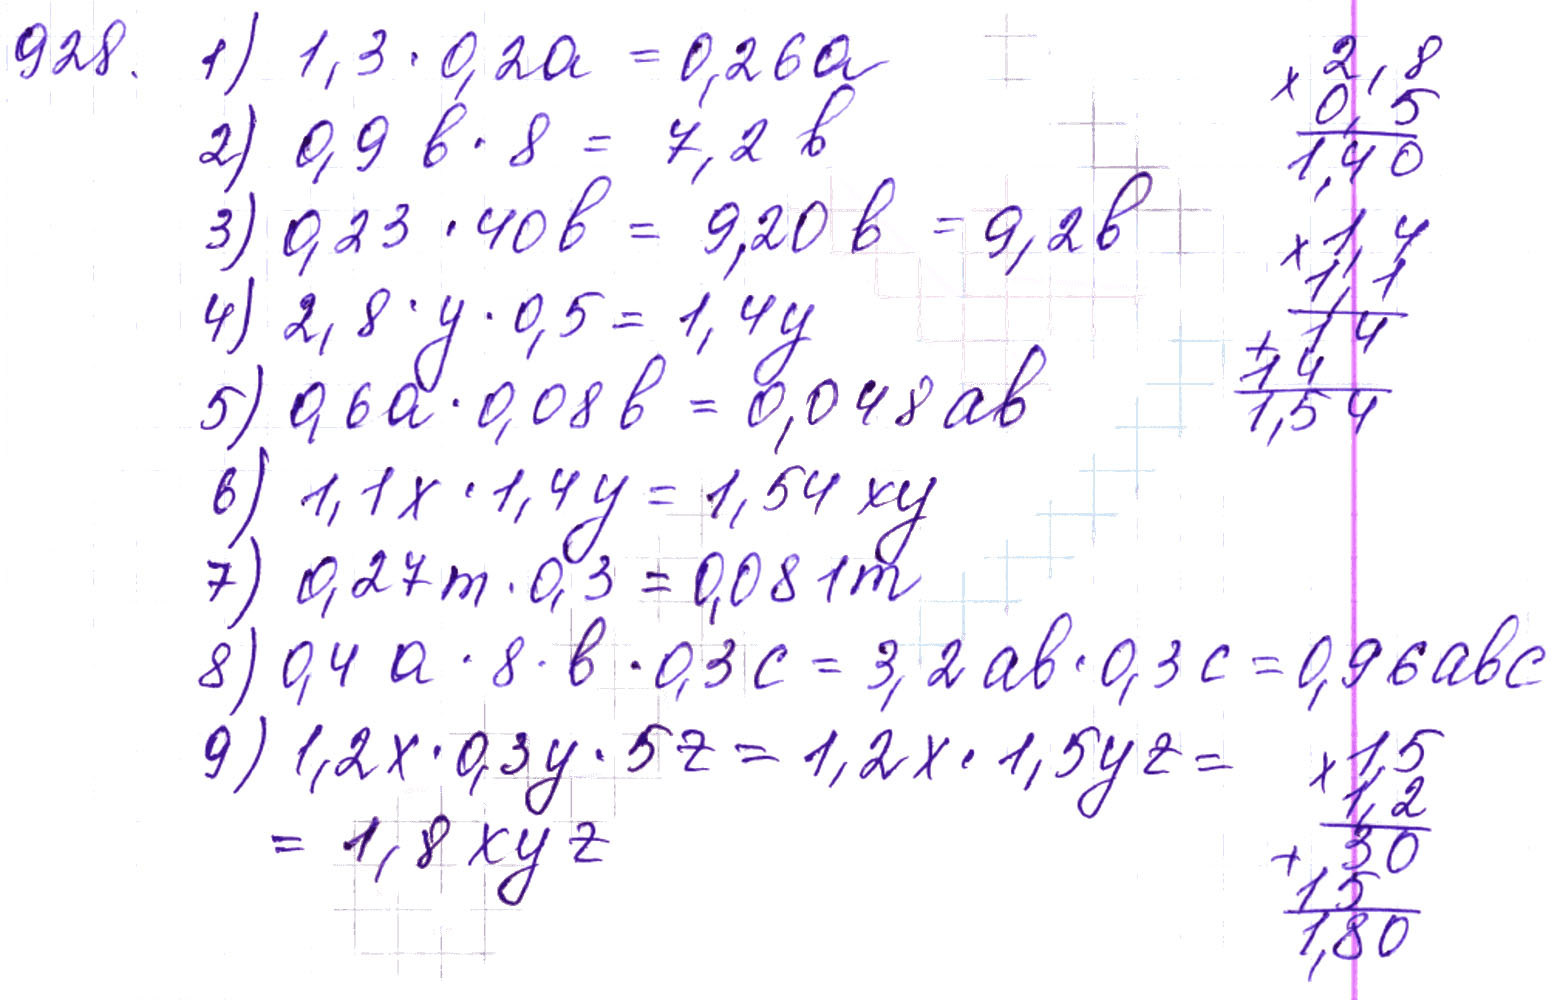 928. 1) 1,3 · 0,2a = 0,26a
2) 0,9 в · 8 = 7,2 в
3) 0,23 · 40в = 9,20в = 9,2в
4) 2,8 · y · 0,5 = 1,4y
5) 0,6a · 0,08в = 0,048aв
6) 1,1x · 1,4y = 1,54 xy
7) 0,27m · 0,3 = 0,081m
8) 0,4 a · 8 · в · 0,3c = 3,2aв · 0,3c = 0,96aвc
9) 1,2x · 0,3y · 5z = 1,2x · 1,5yz =
= 1,8 xyz
x 2,8
0,5
1,40
x 1,4
1,1
14
+ 14
1,54
x 1,5
1,2
30
+ 15
1,80